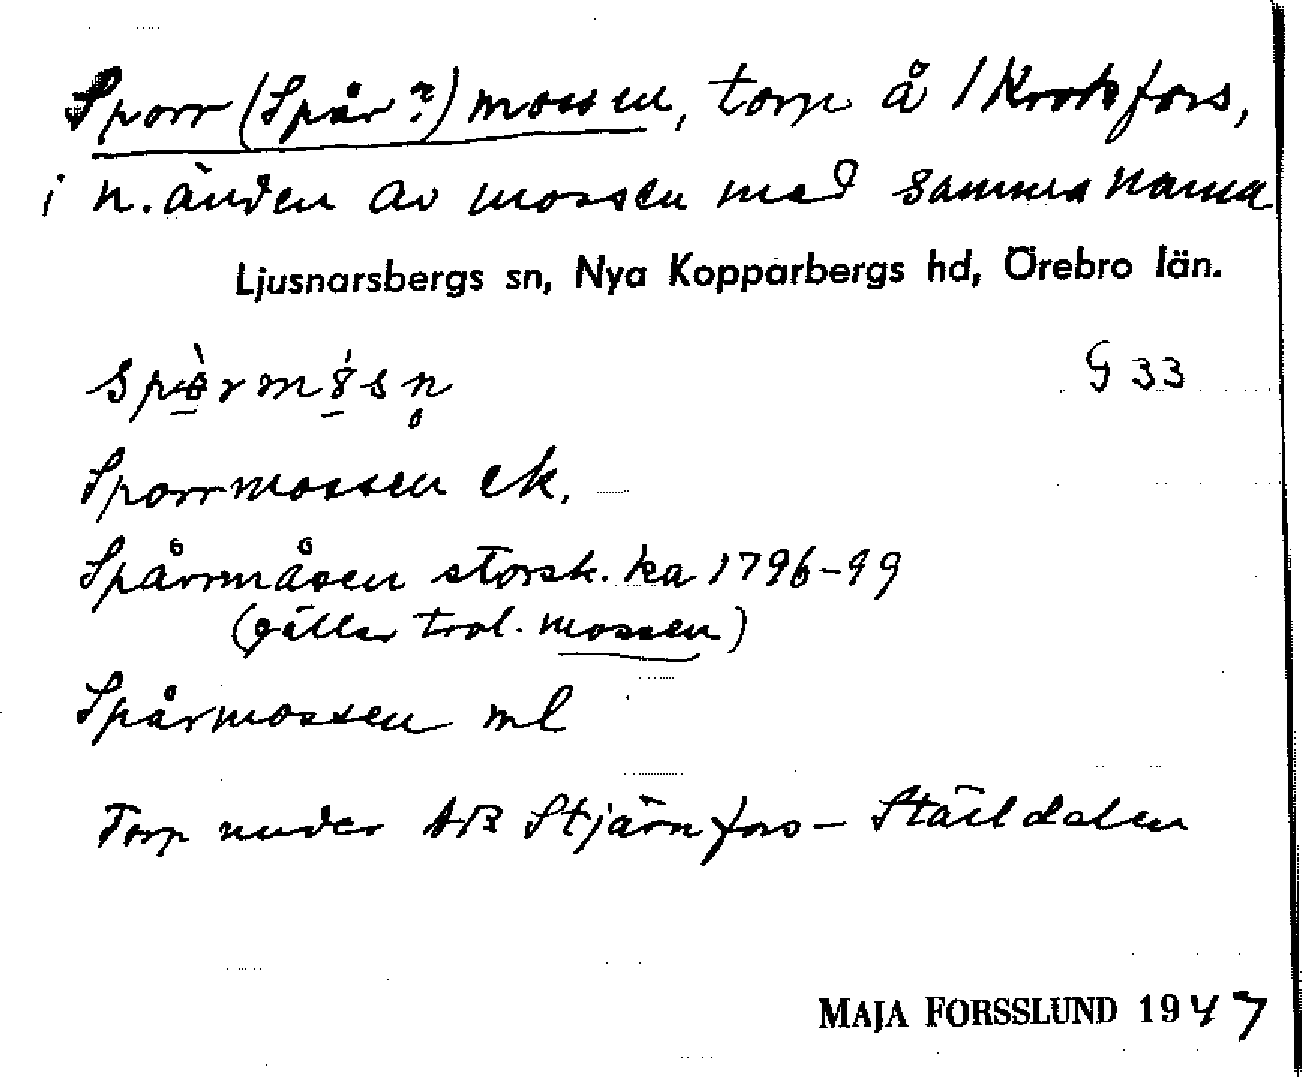 Sporr (Spår?) mossen, torp å 1 Krokfors,
i n. änden av mossen med samma namn
Ljusnarsbergs sn, Nya Kopparbergs hd, Örebro län.
G 33
Sporrmossen ek.
Spårrmåsen storsk. ka 1796-99
(gäller trol. mossen)
Spårmossen ml
Torp under AB Stjärnfors - Ställdalen
MAJA FORSSLUND 1947